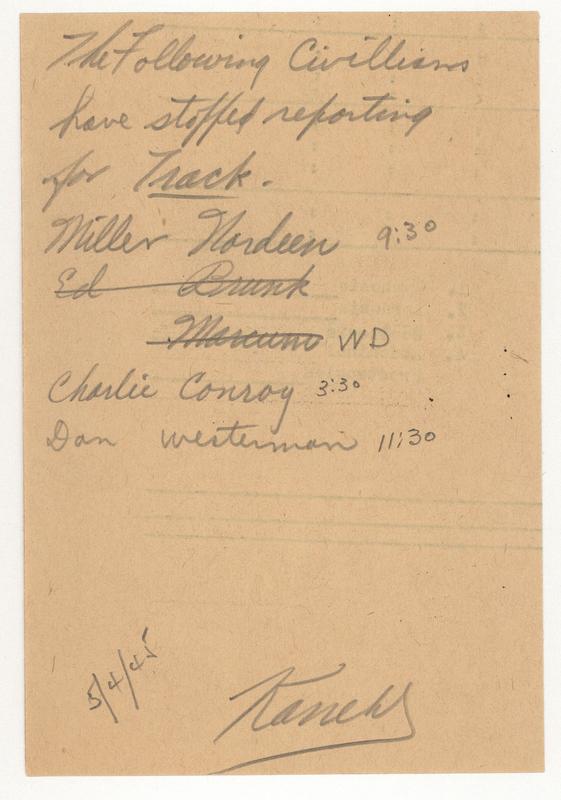 The Following Civillians
have stopped reporting
for Track.
Miller Nordeen 9:30
Ed Brunk
Marcum WD
Charlie Conroy 3:30
Dan Westerman 11:30
5/4/45
Kanehl